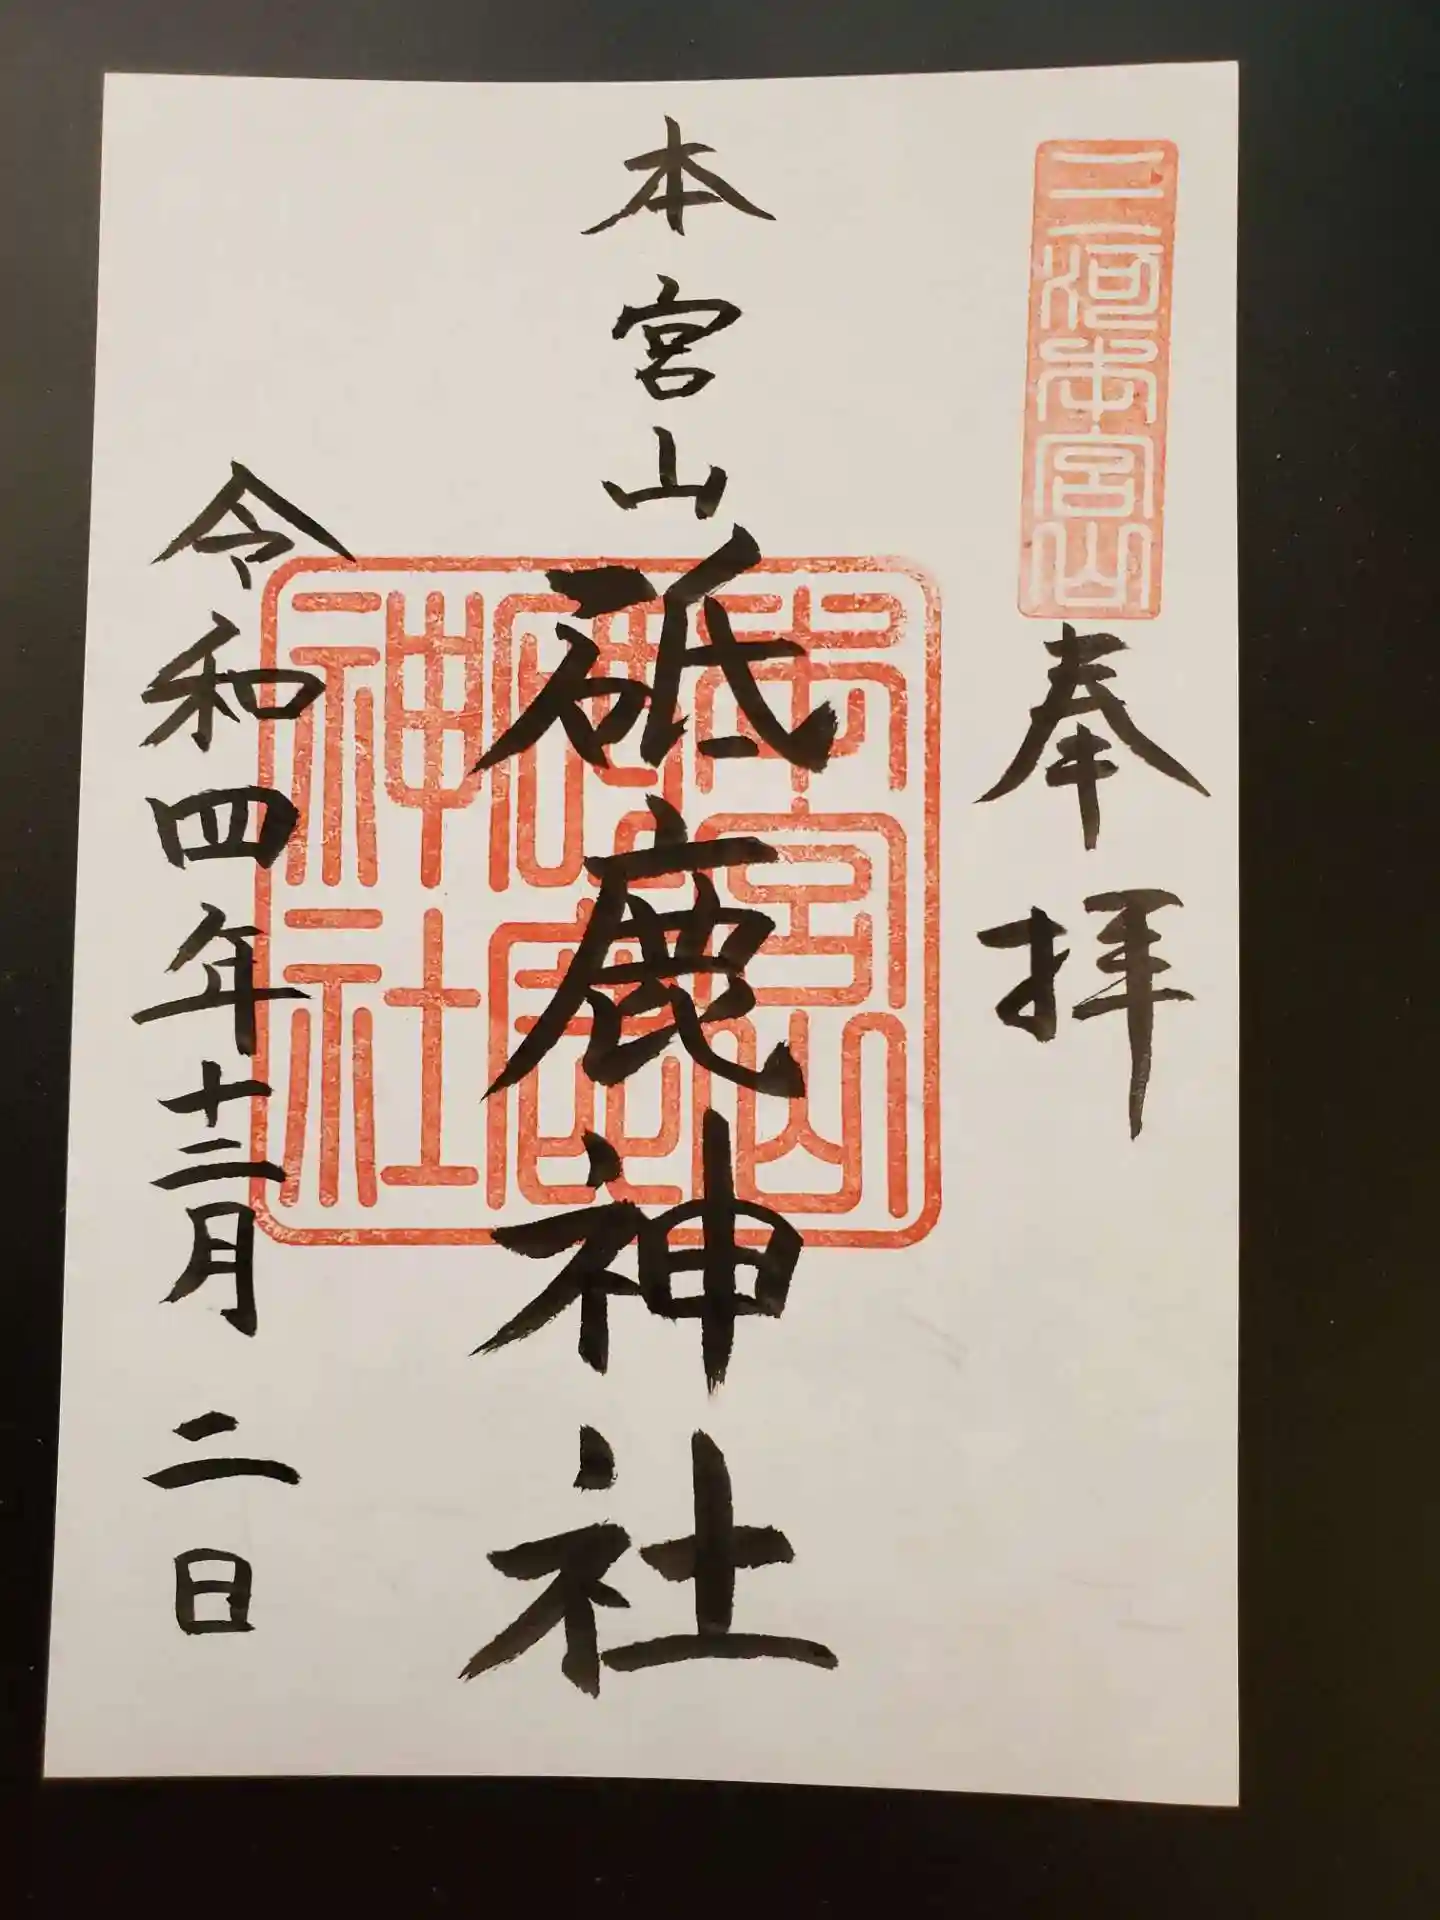 三河本宮山
奉拝
本宮山砥鹿神社
本宮山
砥鹿
神社
令和四年十二月二日